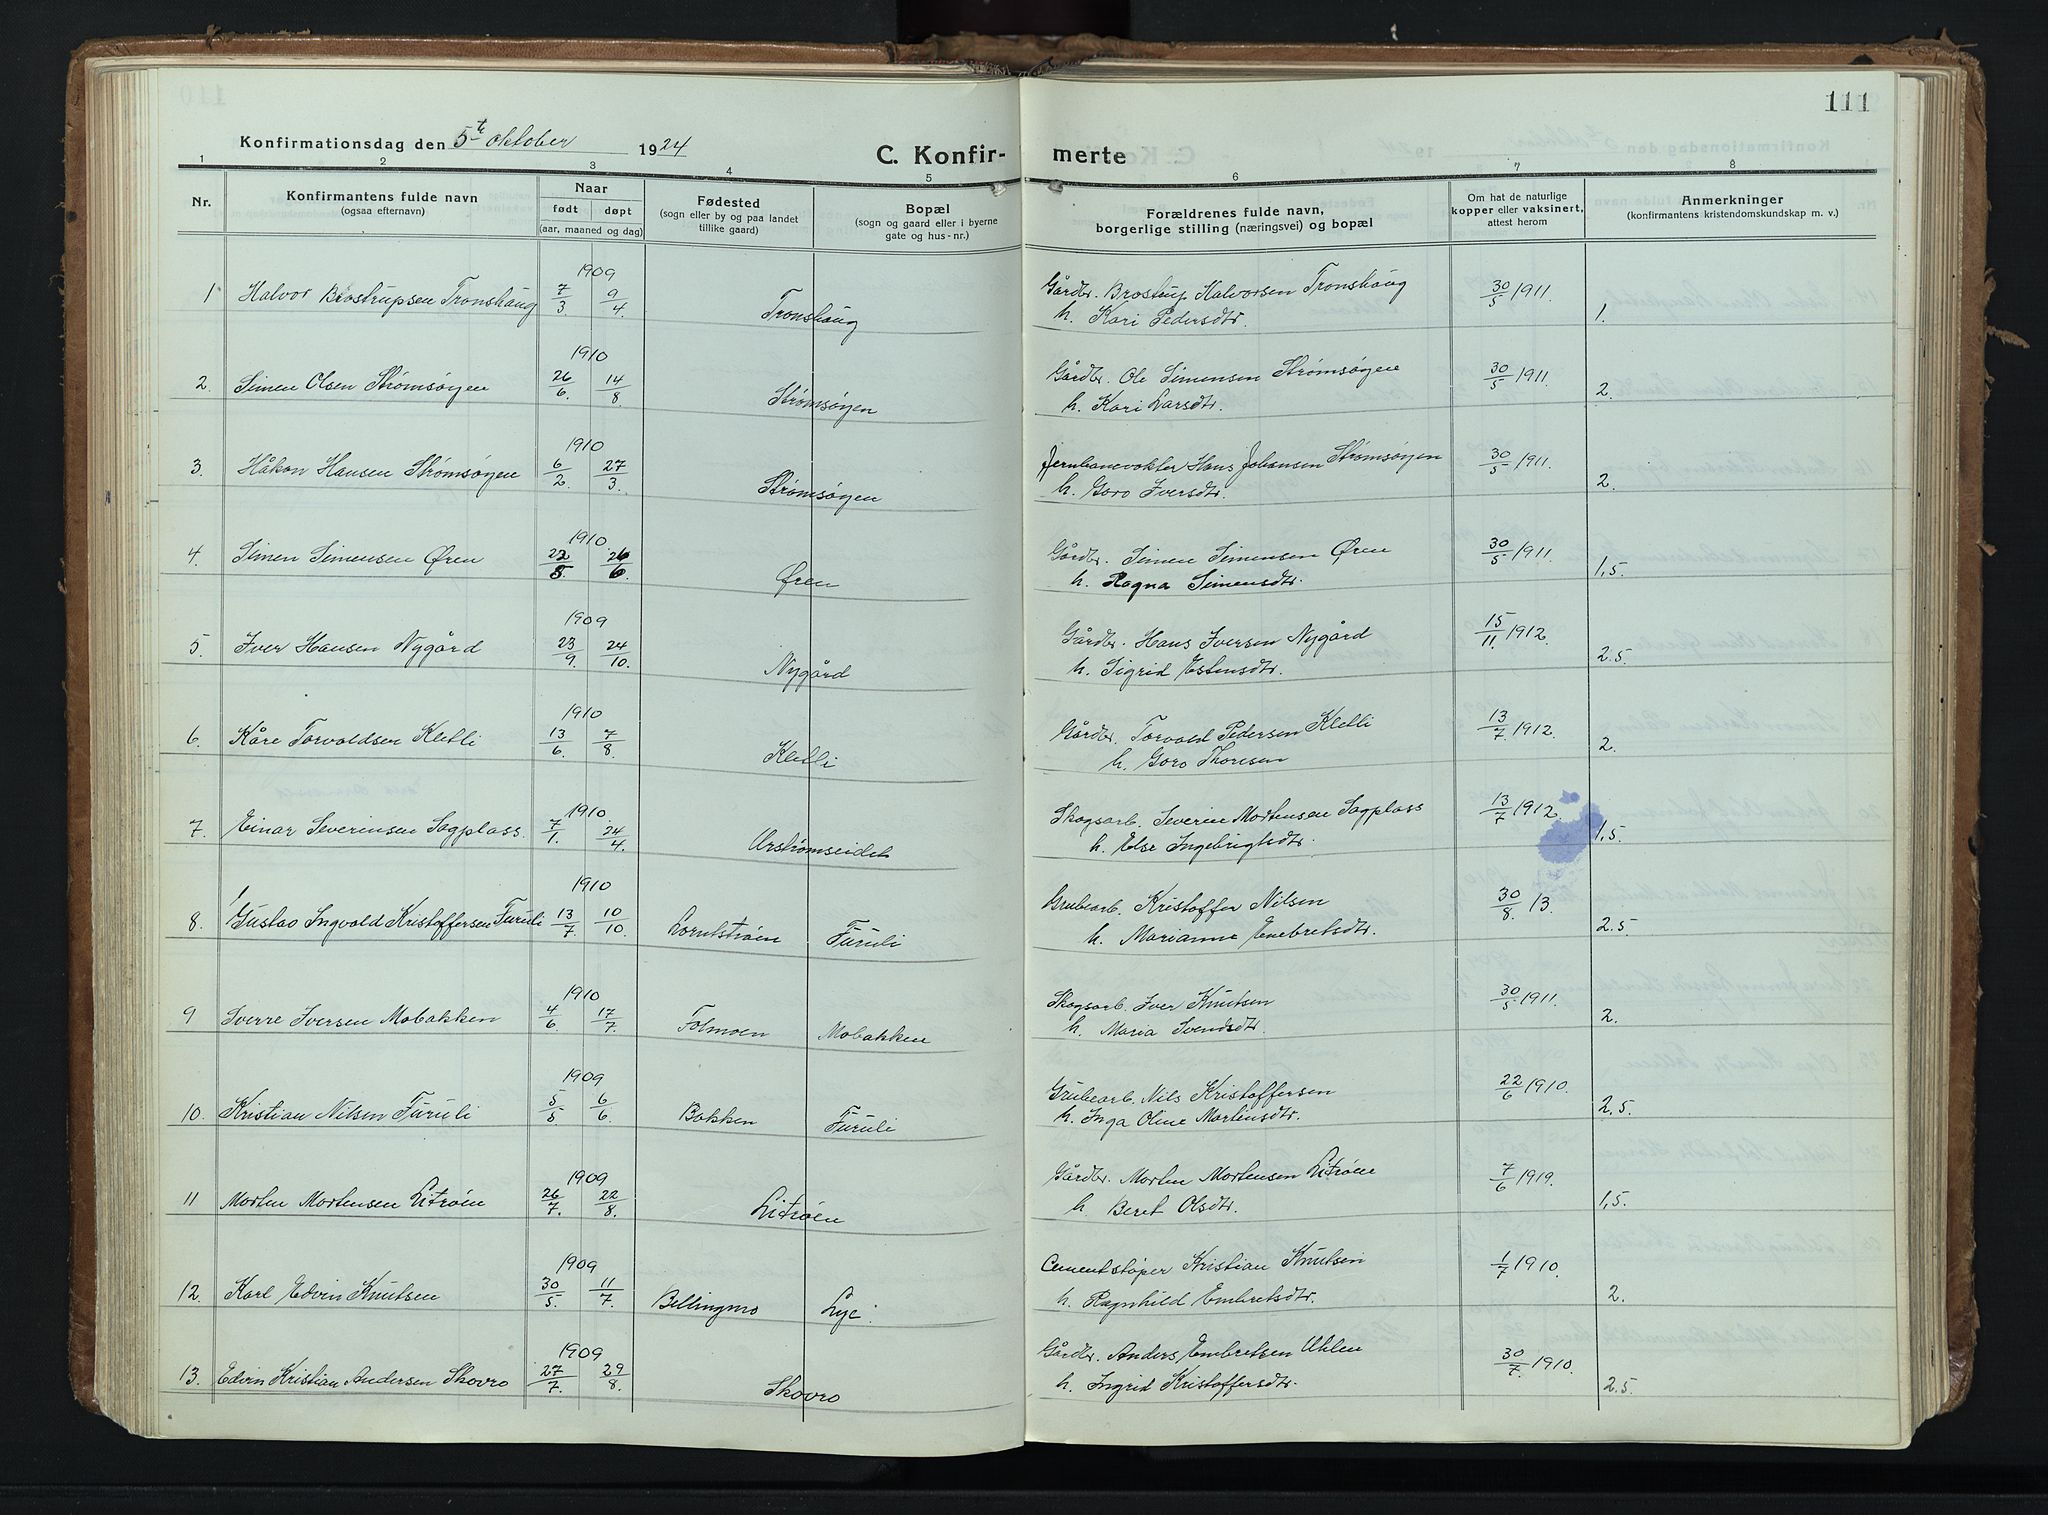 111
Konfirmationsdag den 5te oktober 1924
C. Konfir- merte
1 2 3 4 5 6 7 8
Nr. Konfirmantens fulde navn (ogsaa efternavn) Naar født døpt (aar, maaned og dag) Fødested (sogn eller by og paa landet tillike gaard) Bopæl (sogn og gaard eller i byerne gate og hus-nr.) Forældrenes fulde navn, borgerlige stilling (næringsvei) og bopæl Om hat de naturlige kopper eller vaksinert, attest herom Anmerkninger (konfirmantens kristendomskundskap m. v.)
1909
1 Halvor Brostrupsen Tronshaug 7/3 9/4 Tronshaug Gårdbr. Brostrup Halvorsen Tronshaug 30/5 1911. 1.
h. Kari Pedersdtr.
1910
2. Simen Olsen Strømsøyen 26/6. 14/8 Strømsøyen Gårdbr. Ole Simensen Strømsøyen 30/5 1911. 2.
h. Kari Larsdtr.
1910
3. Håkon Hansen Strømsøyen 6/2. 27/3. Strømsøyen Jernbanevokter Hans Johansen Strømsøyen 30/5 1911. 2.
h. Goro Iversdtr.
1910
4. Simen Simensen Øren 22/5. 26/6. Øren Gårdbr. Simen Simensen Øren 30/5 1911. 1,5.
h. Ragna Simensdtr.
1909
5. Iver Hansen Nygård 23/9. 24/10. Nygård Gårdbr. Hans Iversen Nygård 15/11 1912. 2.5.
h. Sigrid Estensdtr.
1910
6. Kåre Torvaldsen Kletli 13/6 7/8 Kletli Gårdbr. Torvald Pedersen Kletli 13/7. 1912. 2.
h. Goro Thoresen
1910.
7. Einar Severinsen Sagplass. 7/1. 24/4. Urstrømseidet Skogsarb. Severin Mortensen Sagplass 13/7 1912. 1,5.
h. Else Ingebrigtsdtr.
1910
8. Gustav Ingvald Kristoffersen Furuli 13/7. 10/10. Furuli Grubearb. Kristoffer Nilsen 30/8. 13. 2.5.
h. Marianne Enebretsdtr.
1910
9 Sverre Iversen Mobakken 4/6 17/7. Folmoen Mobakken Skogsarb. Iver Knutsen 30/5 1911. 2.
h. Maria Svendsdtr.
1909
10. Kristian Nilsen Furuli 5/5 6/6 Bakken Furuli Grubearb. Nils Kristoffersen 22/6 1910. 2,5.
h. Inga Oline Mortensdtr.
1909
11 Morten Mortensen Litrøen 26/7. 22/8. Litrøen Gårdbr. Morten Mortensen Litrøen 7/6 1919. 1,5.
h Beret Olsdtr.
1909
12. Karl Edvin Knutsen 30/5. 11/7. Bellingmo Lye. Cementstøper Kristian Knutsen 1/7 1910. 2.
h. Ragnhild Embretsdtr.
1909
13. Edvin Kristian Andersen Skovro 27/7. 29/8. Skovro Gårdbr. Anders Embretsen Uhlen 30/7. 1910. 2.5.
h. Ingrid Kristoffersdtr.